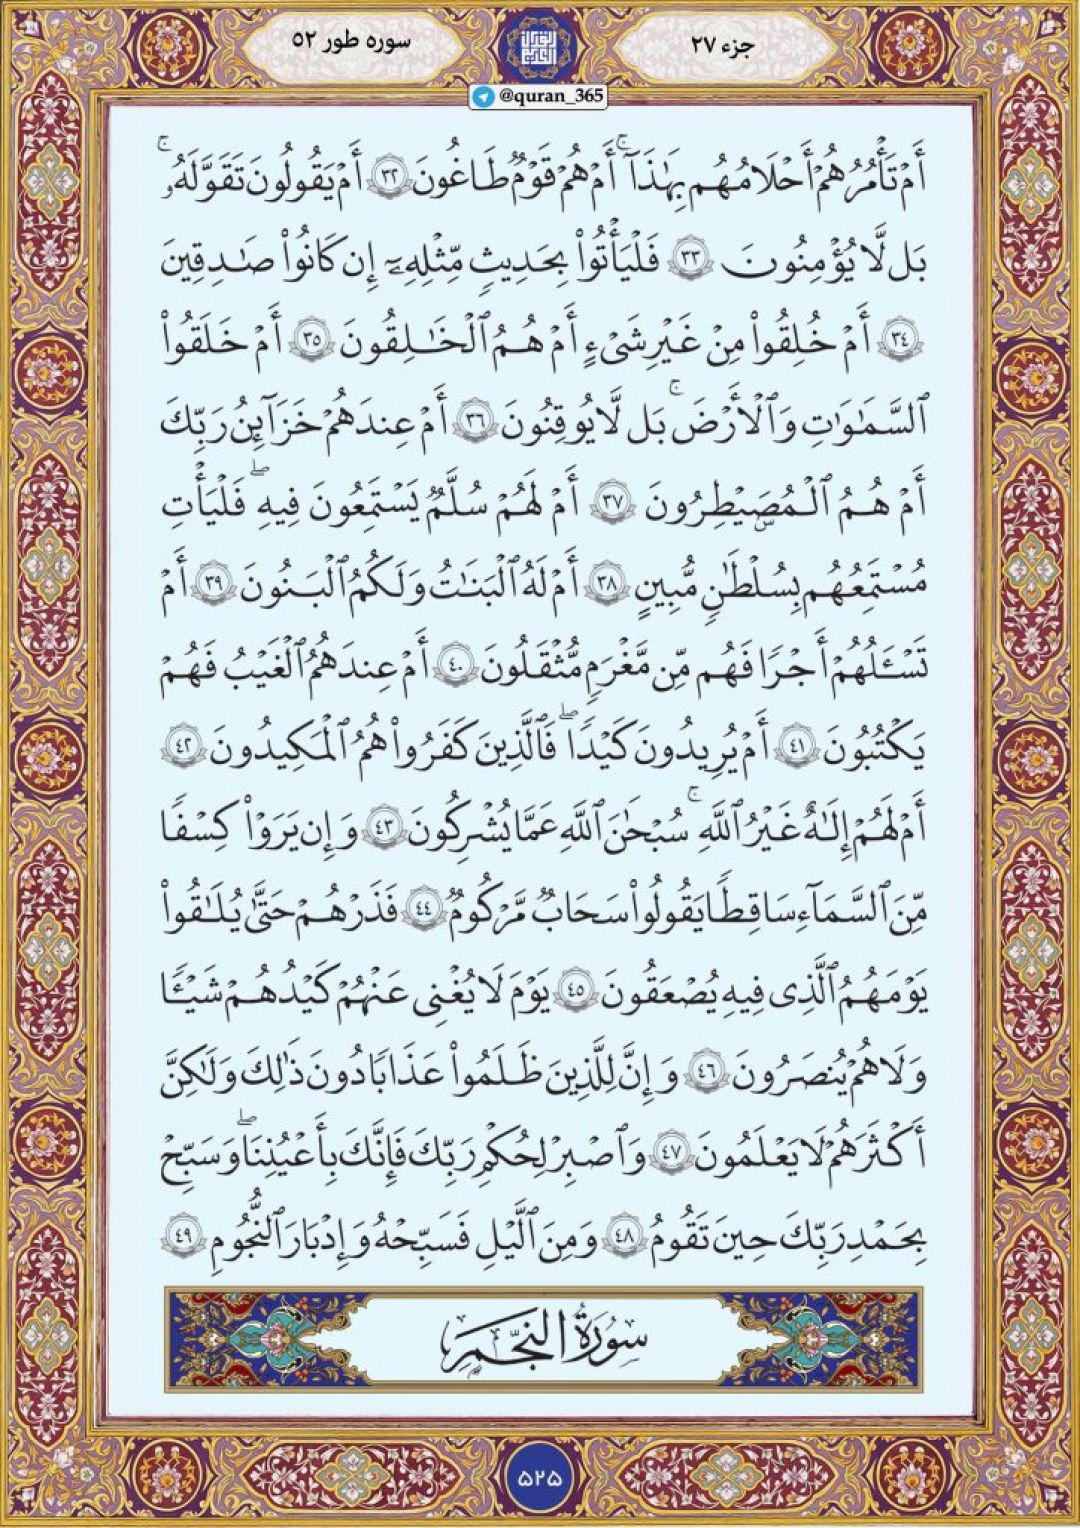 جزء ۲۷
سوره طور ۵۲
@quran_365
أَمْ تَأْمُرُهُمْ أَحْلَامُهُم بِهَٰذَآ ۚ أَمْ هُمْ قَوْمٌ طَاغُونَ ٣٢ أَمْ يَقُولُونَ تَقَوَّلَهُۥ ۚ
بَل لَّا يُؤْمِنُونَ ٣٣ فَلْيَأْتُوا۟ بِحَدِيثٍ مِّثْلِهِۦٓ إِن كَانُوا۟ صَـٰدِقِينَ
٣٤ أَمْ خُلِقُوا۟ مِنْ غَيْرِ شَىْءٍ أَمْ هُمُ ٱلْخَـٰلِقُونَ ٣٥ أَمْ خَلَقُوا۟
ٱلسَّمَـٰوَٰتِ وَٱلْأَرْضَ ۚ بَل لَّا يُوقِنُونَ ٣٦ أَمْ عِندَهُمْ خَزَآئِنُ رَبِّكَ
أَمْ هُمُ ٱلْمُصَۣيْطِرُونَ ٣٧ أَمْ لَهُمْ سُلَّمٌ يَسْتَمِعُونَ فِيهِ ۖ فَلْيَأْتِ
مُسْتَمِعُهُم بِسُلْطَـٰنٍ مُّبِينٍ ٣٨ أَمْ لَهُ ٱلْبَنَـٰتُ وَلَكُمُ ٱلْبَنُونَ ٣٩ أَمْ
تَسْـَٔلُهُمْ أَجْرًا فَهُم مِّن مَّغْرَمٍ مُّثْقَلُونَ ٤٠ أَمْ عِندَهُمُ ٱلْغَيْبُ فَهُمْ
يَكْتُبُونَ ٤١ أَمْ يُرِيدُونَ كَيْدًا ۖ فَٱلَّذِينَ كَفَرُوا۟ هُمُ ٱلْمَكِيدُونَ ٤٢
أَمْ لَهُمْ إِلَـٰهٌ غَيْرُ ٱللَّهِ ۚ سُبْحَـٰنَ ٱللَّهِ عَمَّا يُشْرِكُونَ ٤٣ وَإِن يَرَوْا۟ كِسْفًا
مِّنَ ٱلسَّمَآءِ سَاقِطًا يَقُولُوا۟ سَحَابٌ مَّرْكُومٌ ٤٤ فَذَرْهُمْ حَتَّىٰ يُلَـٰقُوا۟
يَوْمَهُمُ ٱلَّذِى فِيهِ يُصْعَقُونَ ٤٥ يَوْمَ لَا يُغْنِى عَنْهُمْ كَيْدُهُمْ شَيْـًٔا
وَلَا هُمْ يُنصَرُونَ ٤٦ وَإِنَّ لِلَّذِينَ ظَلَمُوا۟ عَذَابًا دُونَ ذَٰلِكَ وَلَـٰكِنَّ
أَكْثَرَهُمْ لَا يَعْلَمُونَ ٤٧ وَٱصْبِرْ لِحُكْمِ رَبِّكَ فَإِنَّكَ بِأَعْيُنِنَا ۖ وَسَبِّحْ
بِحَمْدِ رَبِّكَ حِينَ تَقُومُ ٤٨ وَمِنَ ٱلَّيْلِ فَسَبِّحْهُ وَإِدْبَـٰرَ ٱلنُّجُومِ ٤٩
سُورَةُ النَّجْمِ
۵۲۵